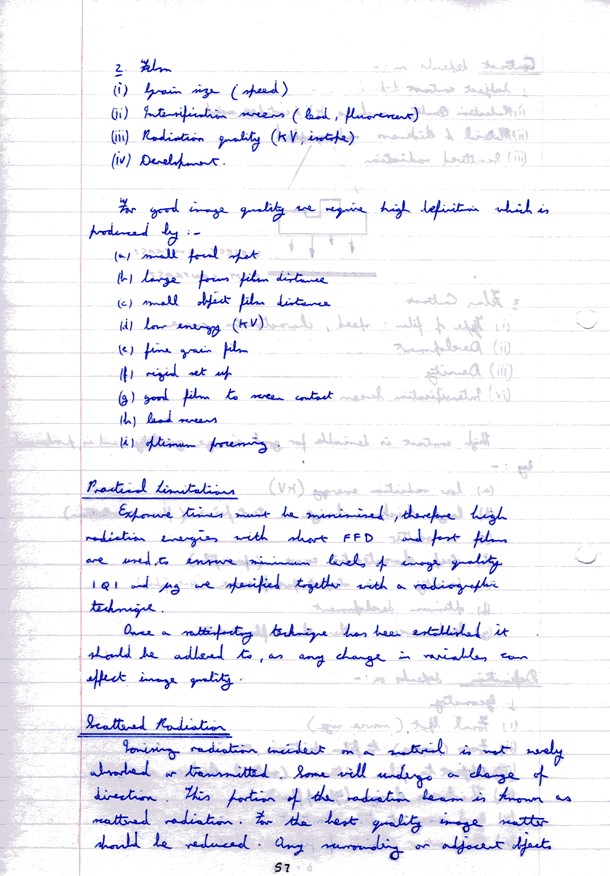 2. Film
(i) Grain size (speed)
(ii) Intensification screens (lead, fluorescent)
(iii) Radiation quality (KV, isotope)
(iv) Development.
For good image quality we require high definition which is
produced by :-
(a) small focal spot
(b) large focus film distance
(c) small object film distance
(d) low energy (KV)
(e) fine grain film
(f) rigid set up
(g) good film to screen contact
(h) lead screens
(i) optimum processing.
Practical Limitations
Exposure times must be minimised, therefore high
radiation energies with short FFD and fast films
are used, to ensure minimum levels of image quality
IQI and μg are specified together with a radiographic
technique.
Once a satisfactory technique has been established it
should be adhered to, as any change in variables can
effect image quality.
Scattered Radiation
Ionising radiation incident on a material is not merely
absorbed or transmitted. Some will undergo a change of
direction. This portion of the radiation beam is known as
scattered radiation. For the best quality image scatter
should be reduced. Any surrounding or adjacent objects
57